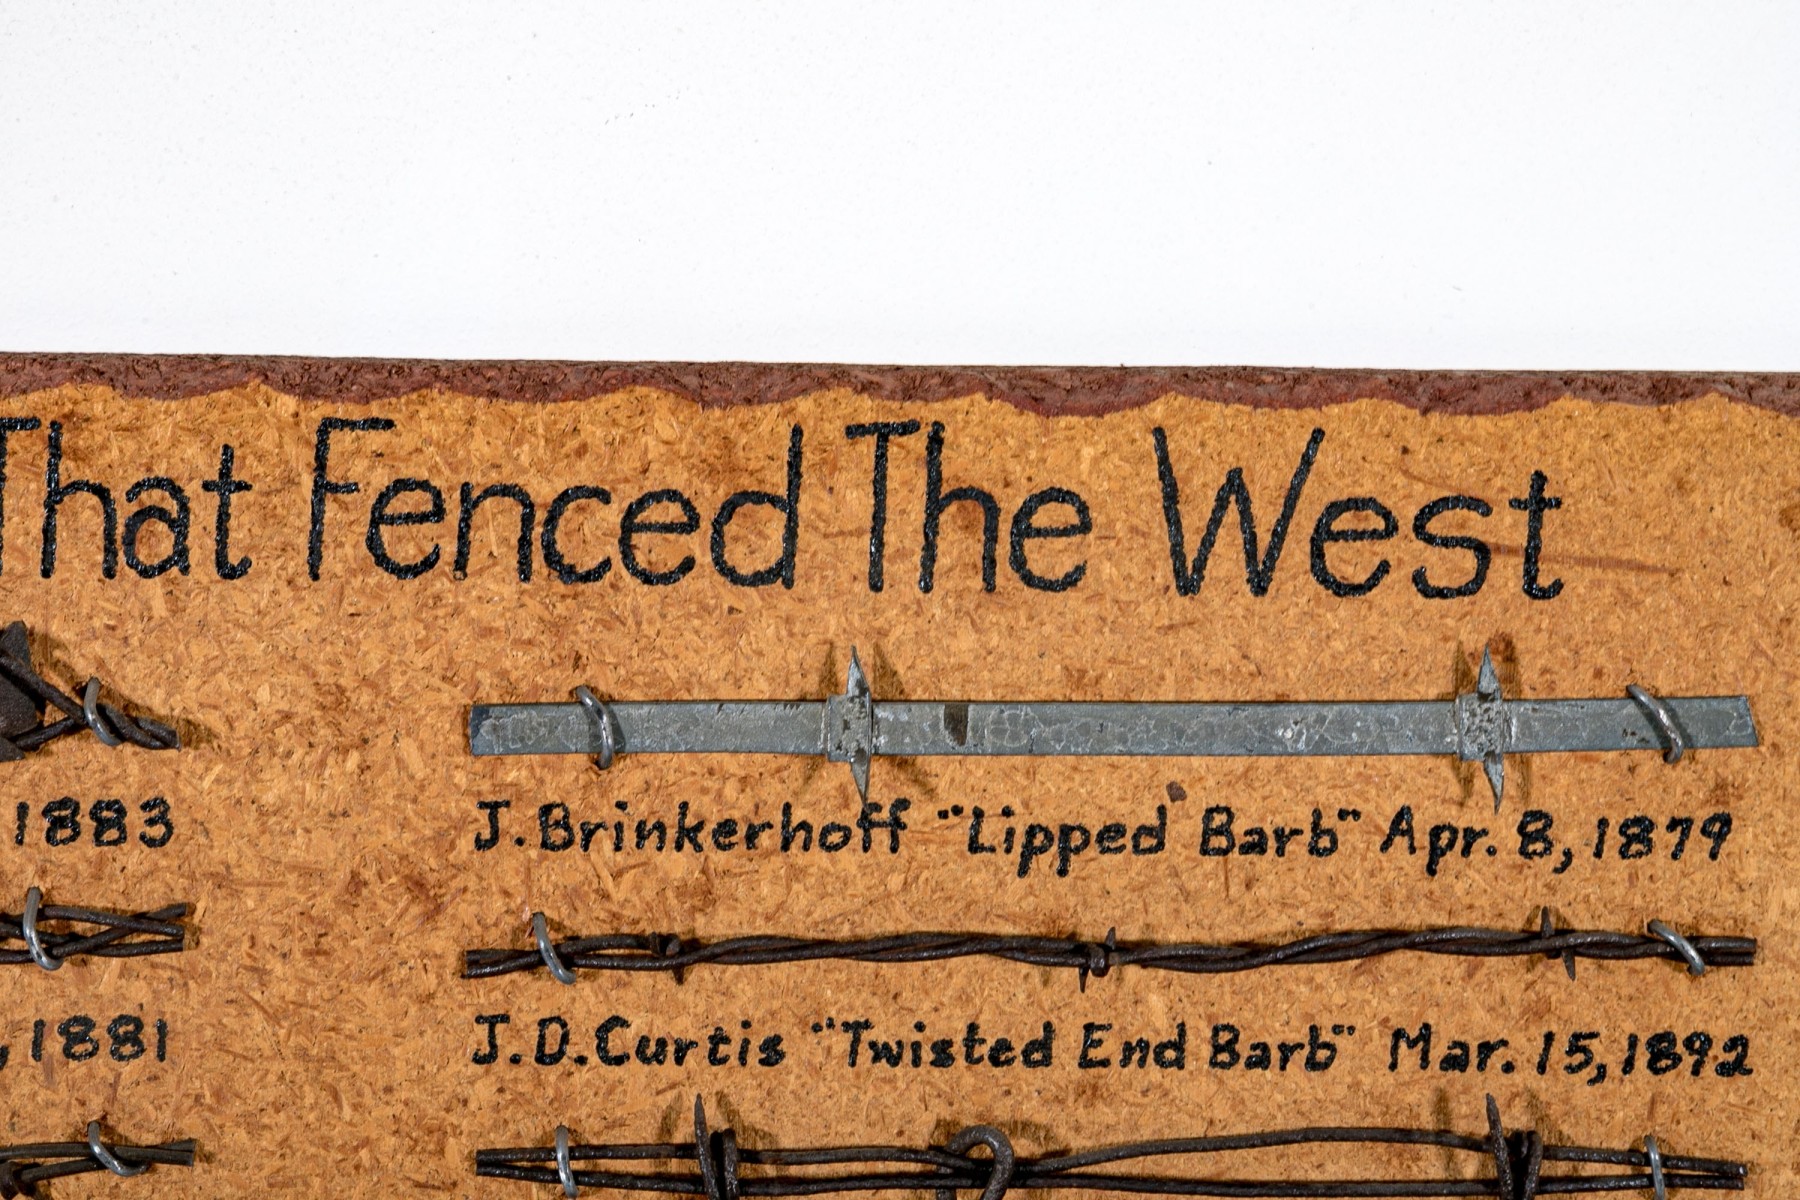 That Fenced The West
1883
J. Brinkerhoff "Lipped Barb" Apr. 8, 1879
, 1881
J. D. Curtis "Twisted End Barb" Mar. 15, 1892